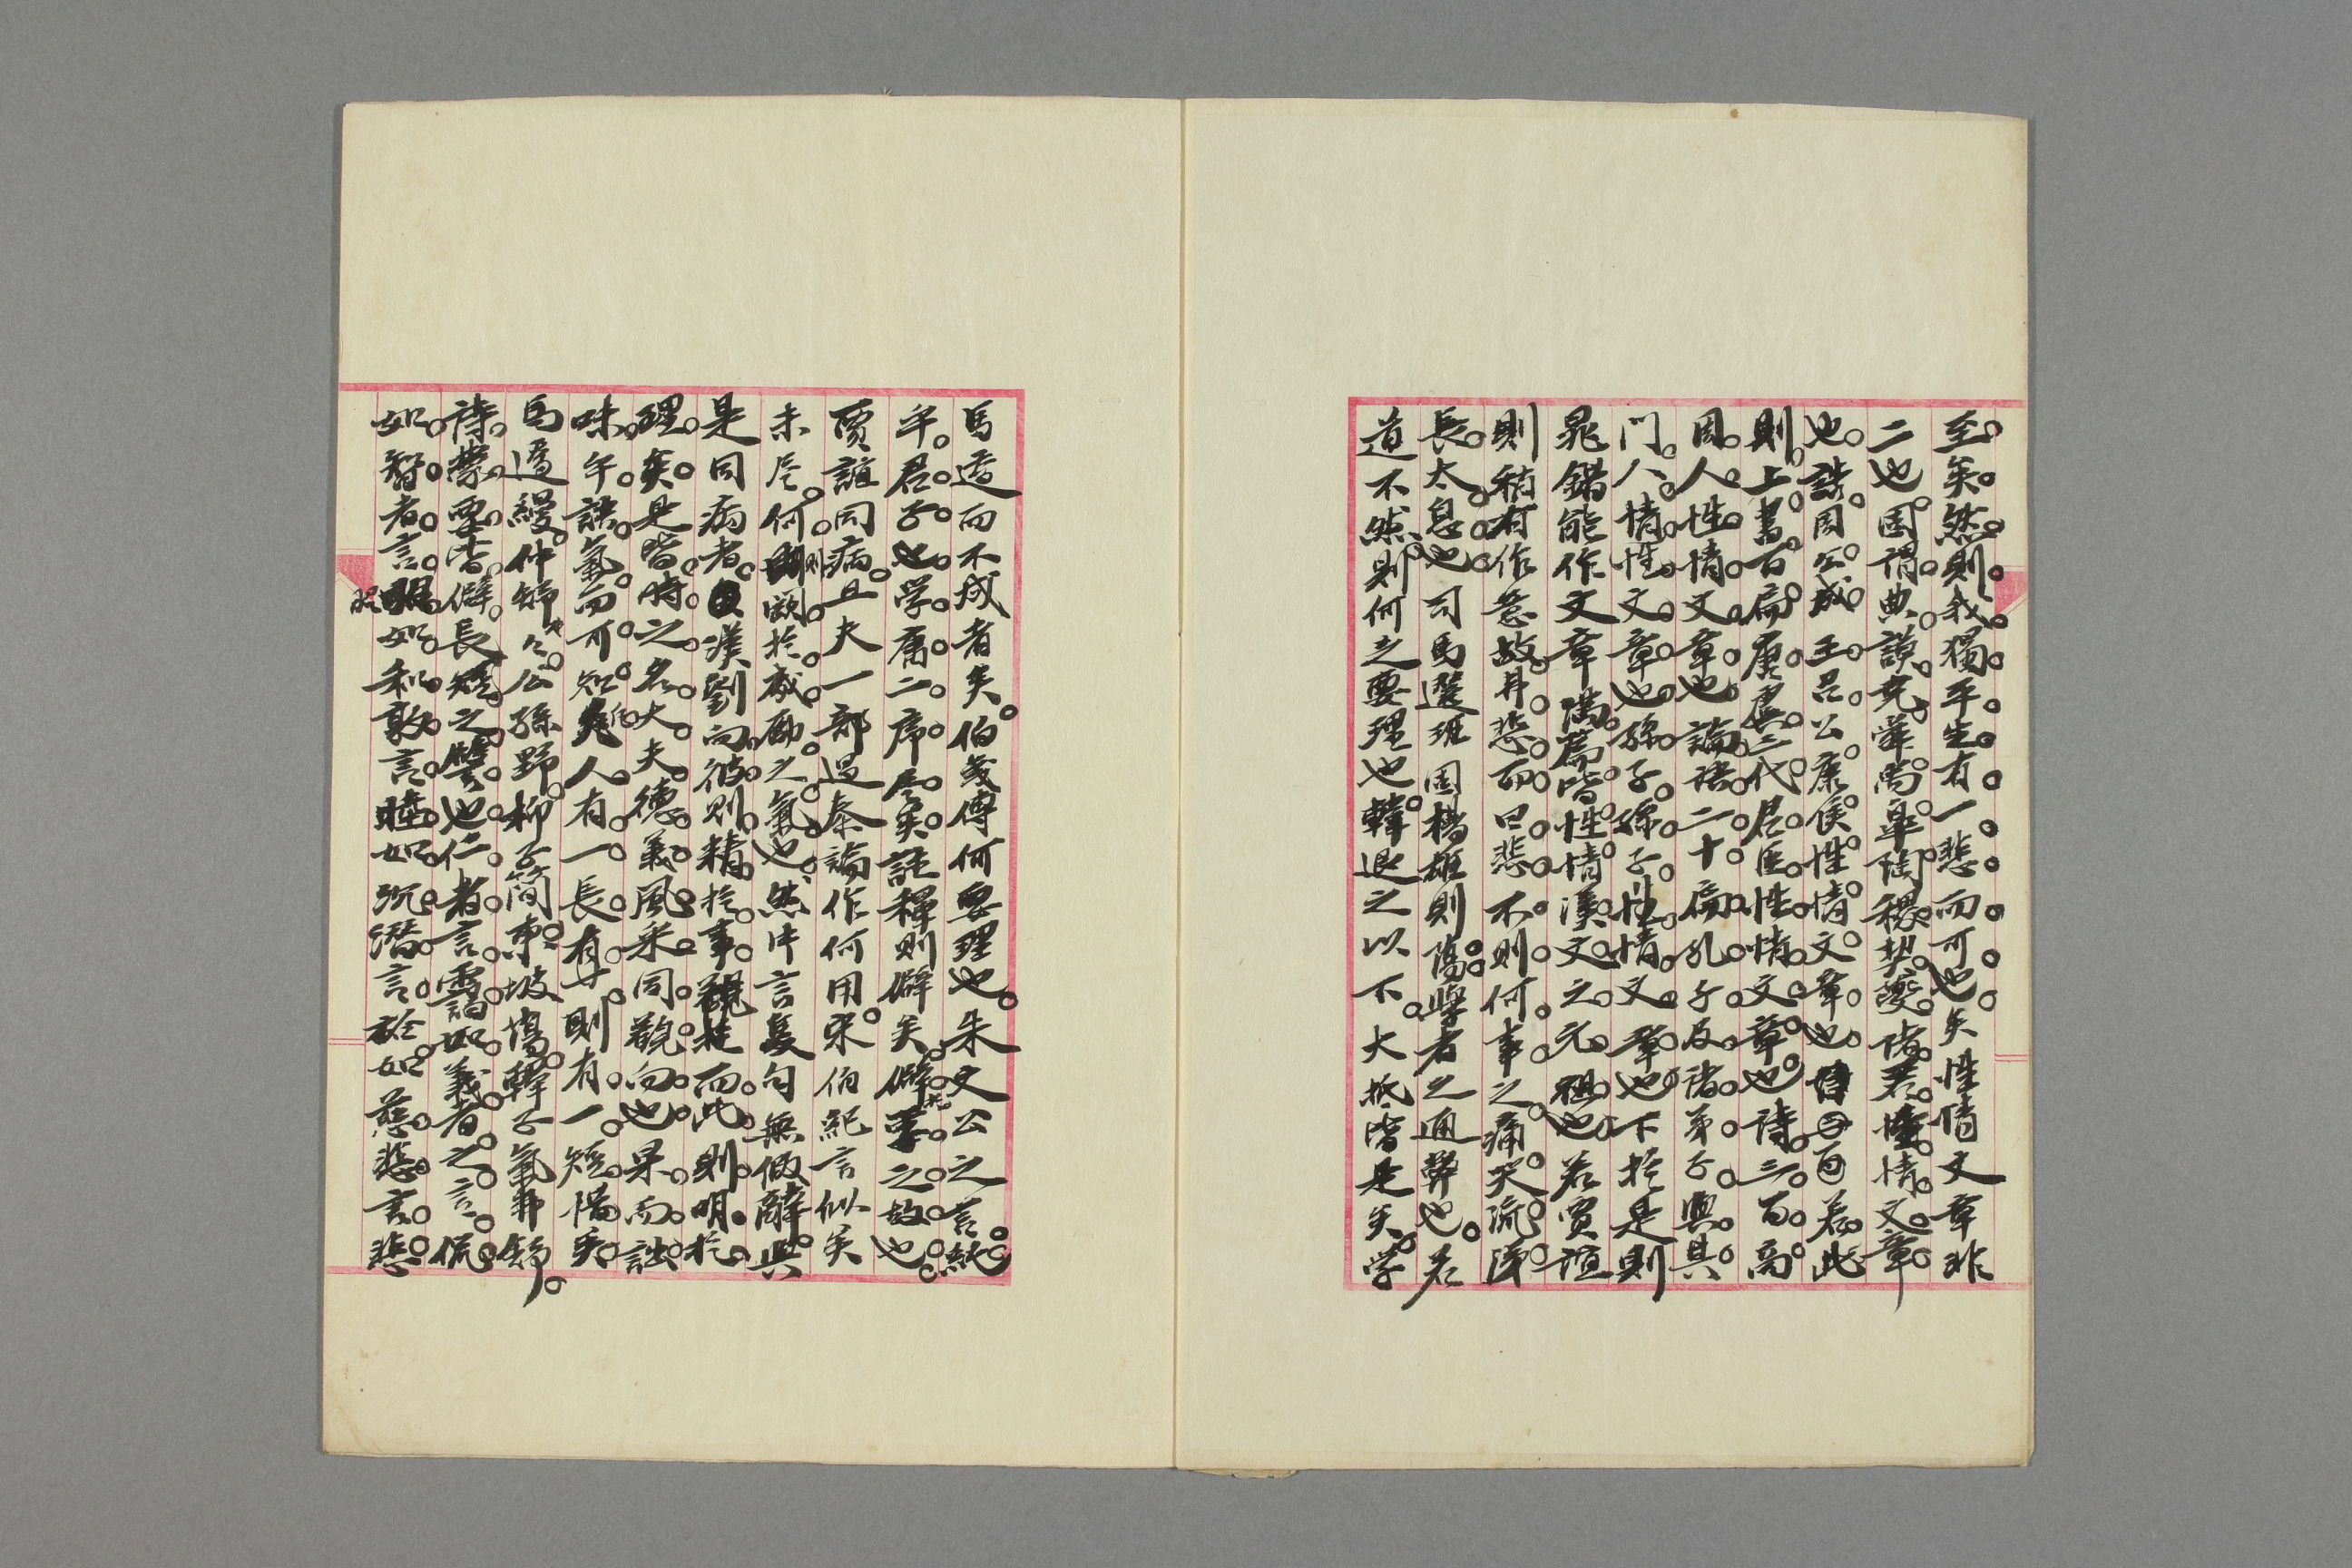 至矣然則我獨平生有一悲而可也矣性情文章非
二也固謂典謨堯舜禹皋陶稷契夔諸君性情文章
也誥周公成王呂公康侯性情文章也若此
則上書百篇唐虞三代君臣性情文章也詩三百商
周人性情文章也論語二十篇孔子及諸弟子與其
門人情性文章也孫子孫子性情文章也下於是則
晁錯能作文章滿篇皆性情漢文之元祖也若賈誼
則稍有作意故毋悲而曰悲不則何事之痛哭流涕
長太息也司馬遷班固楊雄則蕩學者之通弊也若
道不然則何之要理也韓退之以下大抵皆是矣学
馬遷而不成者矣伯夷傳何要理也朱文公之言純
乎君子也学庸二序尽矣註釋則僻矣僻於之故也
賈誼同病且夫一部過秦論作何用宋伯紀言似矣
未尽何則闕於感勵之氣也然片言隻句無俶辭與
是同病者漢劉向彼則精於事觀桂而此則明於
理矣是皆時之名大夫德義風采同觀向也果而詘
味乎誤氣而可知人有一長有才則有一短惜乎
馬遷縵仲舒々公孫野柳子簡東坡蕩韓子氣弗舒
詩蒙要皆僻長短之譬也仁者言靄如義者之言侃
如智者言昭如和敦言睦如沉潛言於如慈悲言悲